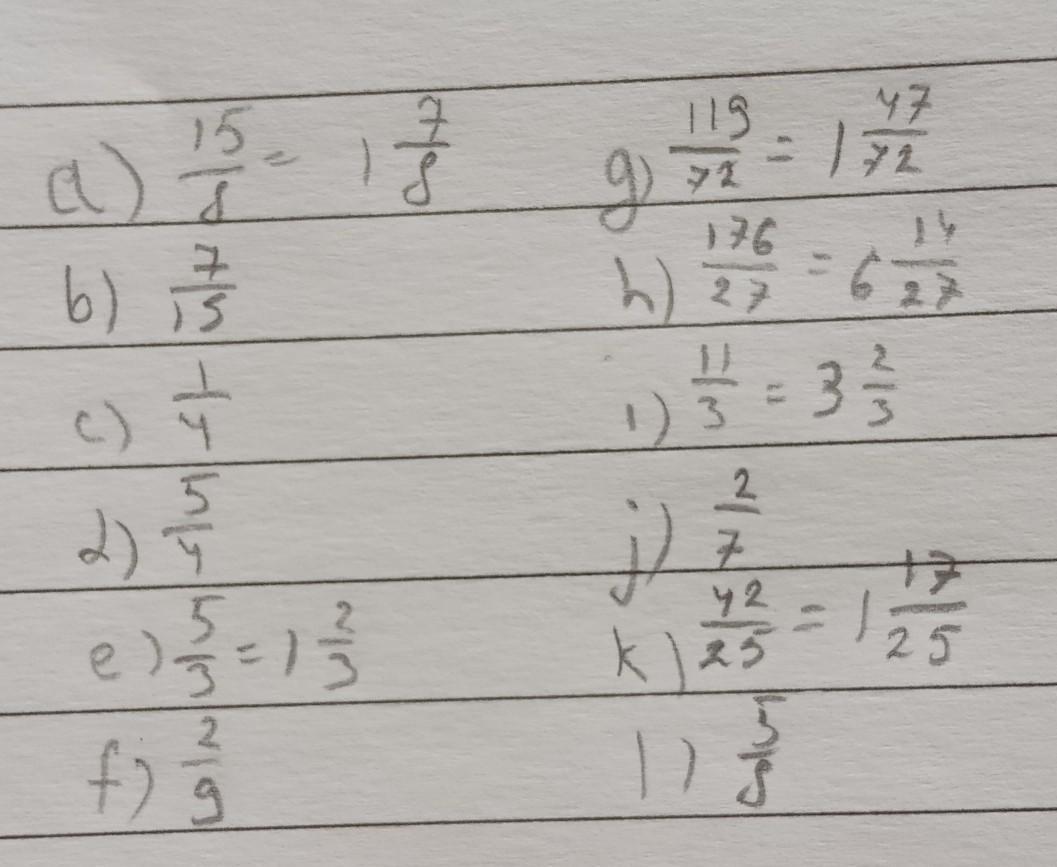 a) 15/8 = 1 7/8
b) 7/15
c) 1/4
d) 5/4
e) 5/3 = 1 2/3
f) 2/9
g) 119/72 = 1 47/72
h) 176/27 = 6 14/27
i) 11/3 = 3 2/3
j) 2/7
k) 42/25 = 1 17/25
l) 5/8